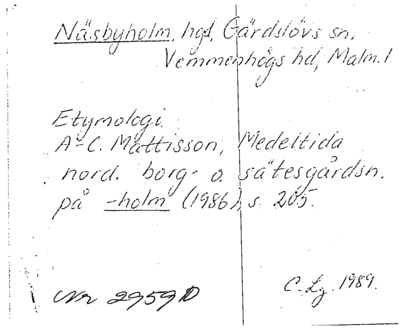 Näsbyholm, hgd, Gärdslövs sn.
Vemmenhögs hd, Malm. l.
Etymologi.
A-C. Mattisson, Medeltida
nord. borg- o. sätesgårdsn.
på -holm (1986), s. 205.
C. Lg. 1989.
Nr 2959 D